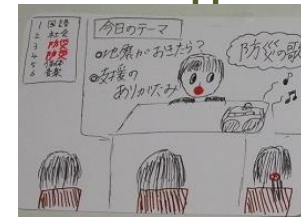 1 国語
2 社会
3 防災
4 防災
5 体
6 音楽
今日のテーマ
○地震がおきたら？
○支援の
ありがたみ
防災の歌